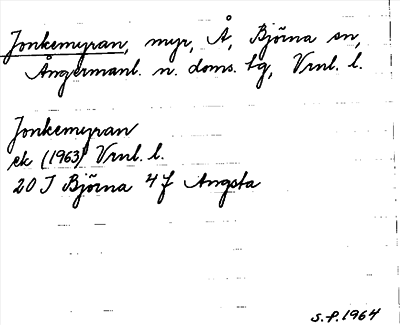 Jonkemyran, myr, Å, Björna sn,
Ångermanl. n. doms. tg, Vrnl. l.
Jonkemyran
ek (1963) Vrnl. l.
20 J Björna 4 f Angsta
S.P. 1964